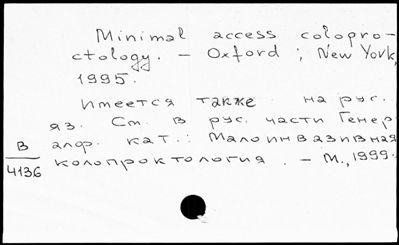 Minimal access colopro-
ctology. – Oxford ; New York,
1995.
Имеется также на рус.
яз. См. в рус. части Генер
алф. кат.: Малоинвазивная
колопроктология. – М., 1999.
В
4136